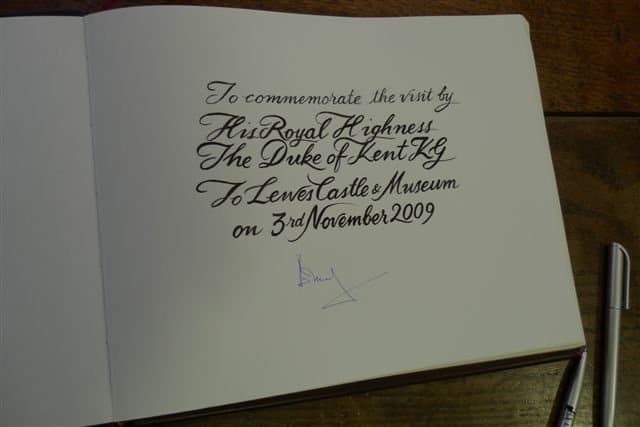 To commemorate the visit by
His Royal Highness
The Duke of Kent KG
To Lewes Castle & Museum
on 3rd November 2009